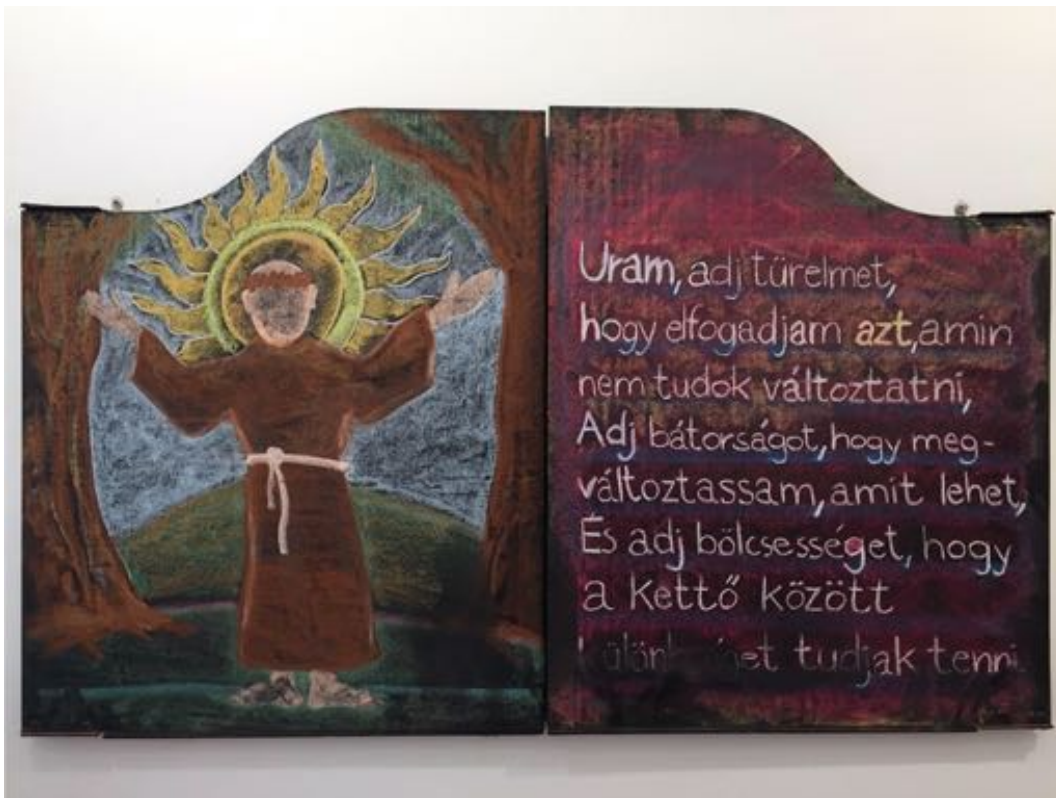 Uram, adj türelmet,
hogy elfogadjam azt, amin
nem tudok változtatni,
Adj bátorságot, hogy meg-
változtassam, amit lehet,
És adj bölcsességet, hogy
a Kettő között
tudjak tenni